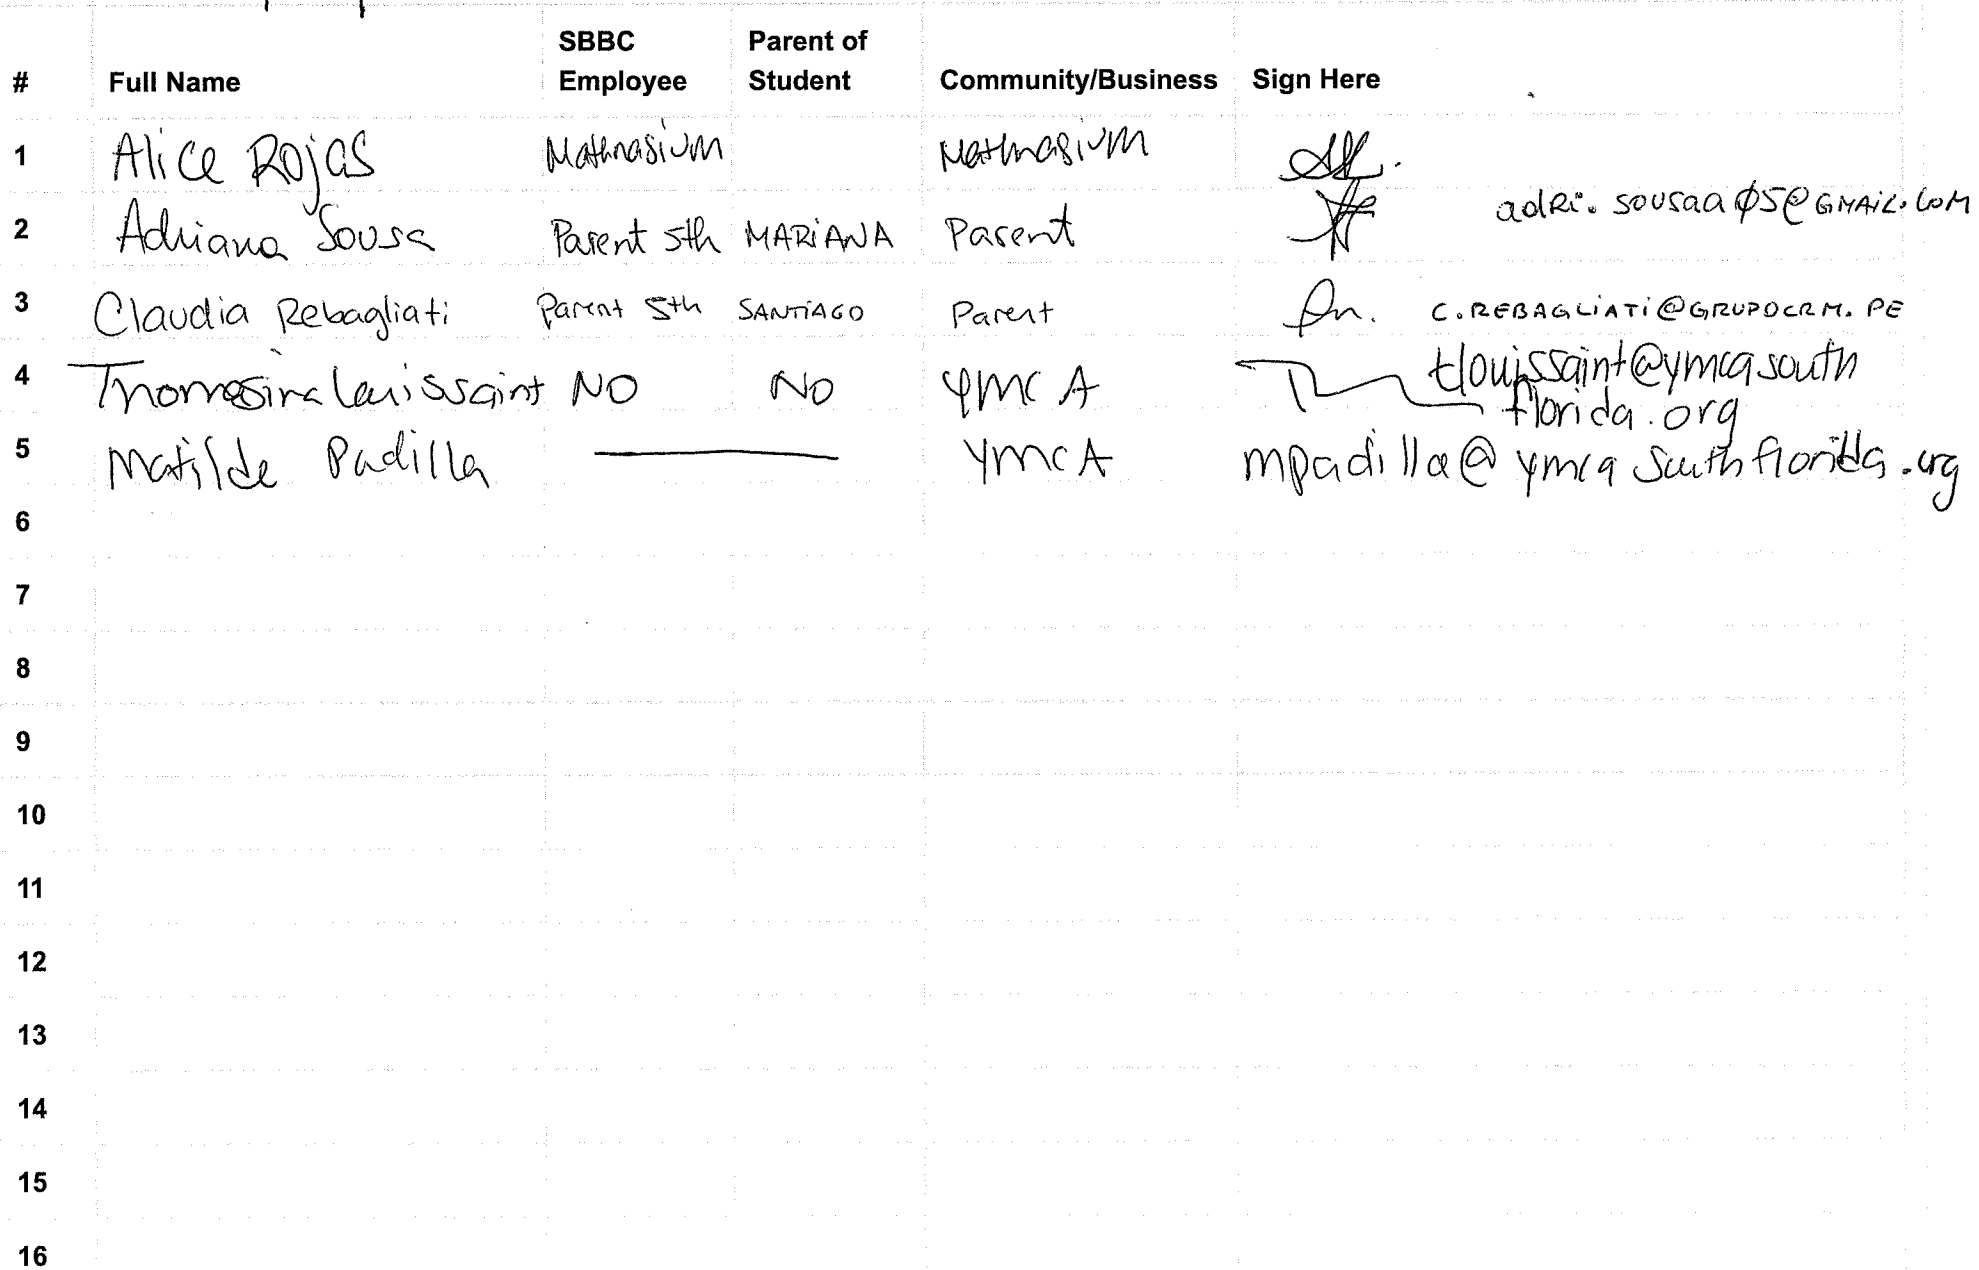 # Full Name SBBC Employee Parent of Student Community/Business Sign Here
1 Alice Rojas Mathnasium Mathnasium
2 Adriana Sousa Parent 5th MARIANA Parent adRi.sousaa05@GMAIL.COM
3 Claudia Rebagliati Parent 5th SANTIAGO Parent C.REBAGLIATI@GRUPOCRM.PE
4 Thomasina Louissaint NO NO YMCA tlouissaint@ymcasouth
florida.org
5 Matilde Padilla YMCA mpadilla@ymcasouthflorida.org
6
7
8
9
10
11
12
13
14
15
16